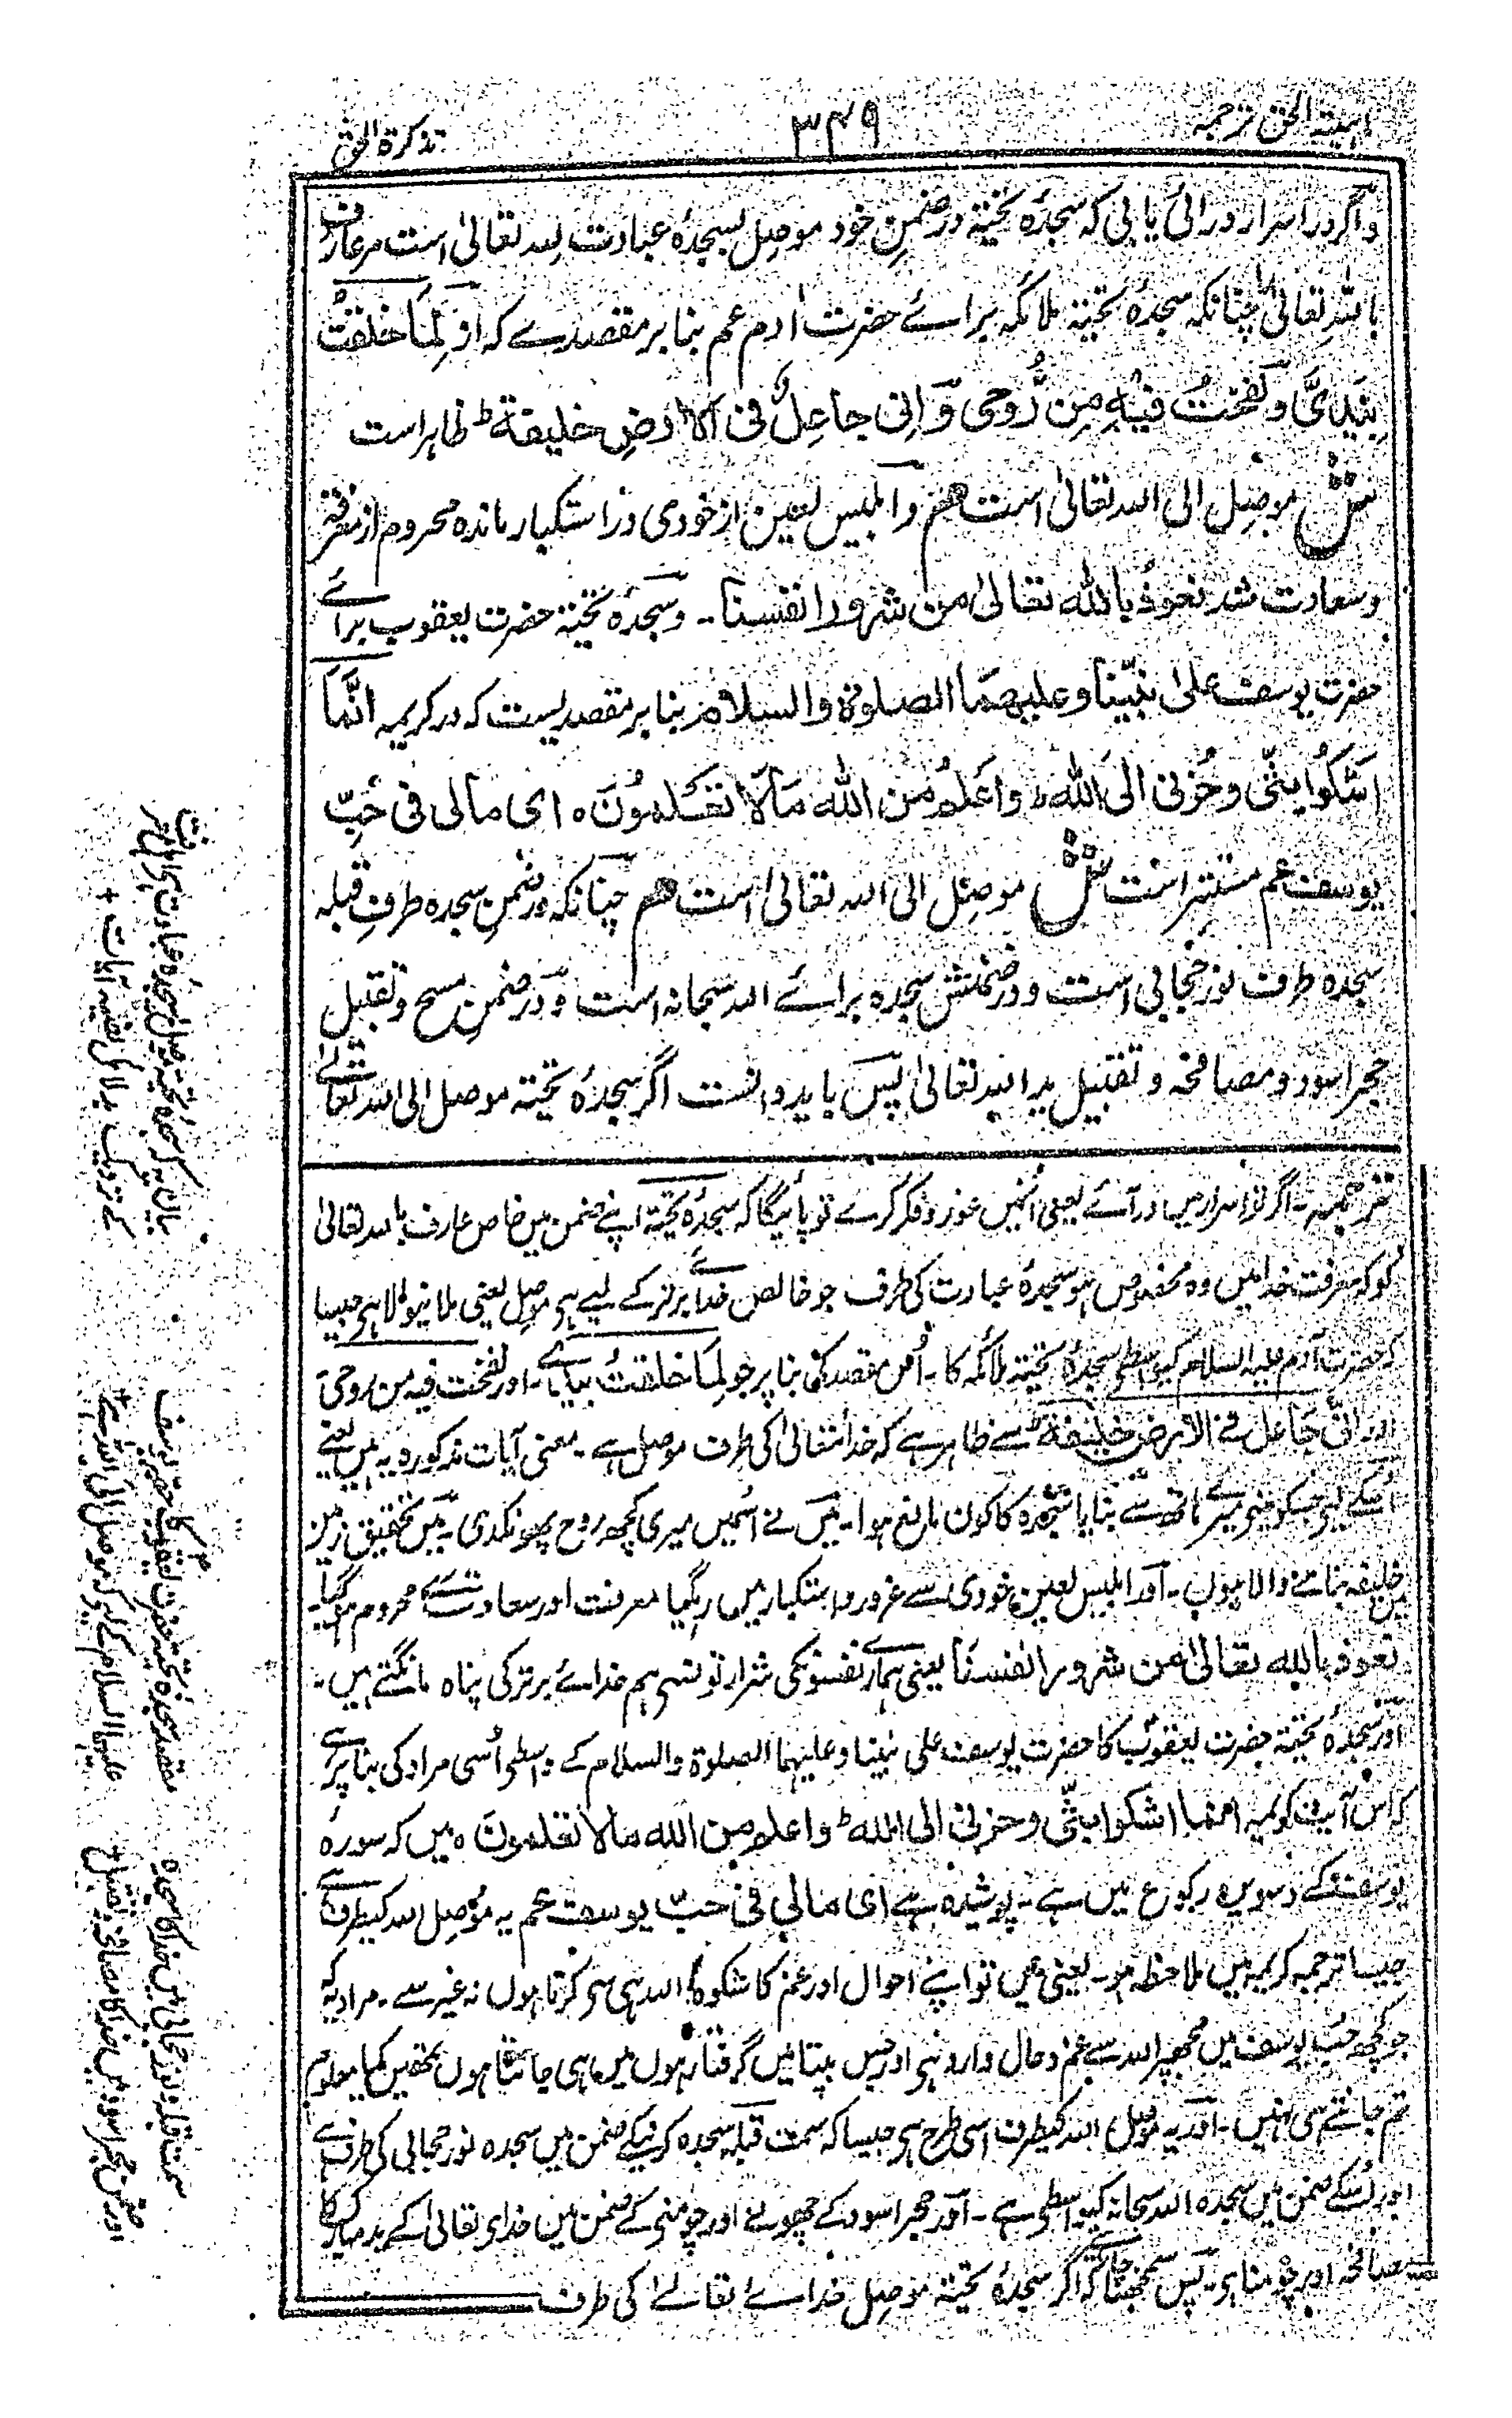 ترجمہ
۳۴۹
تذکرۃ الحق
واگر در اسرار در ائی یابی کہ سجدۂ تحیتہ در ضمنِ خود موصِل بسجدۂ عبادت للہ تعالیٰ است مر عارف
باللہ تعالیٰ را چنانکہ سجدۂ تحیتہ ملائکہ برائے حضرت ادم عم بنا بر مقصدے کہ از لِمَا خلقتُ
بِیَدَیَّ و نَفَخْتُ فِیْہِ مِن رُّوحی وَ اِنِی جاعِلٌ فی الارضِ خلیفۃ ط ظاہر است
موصِل الی اللہ تعالیٰ است ھم و ابلیس لعین از خودی در استکبار ماندہ محروم از معرفت
وسعادت شد نعوذُ باللہ تعالیٰ من شرور انفسنا ۔ و سجدۂ تحیتہ حضرت یعقوب برائے
حضرت یوسف علیٰ نبیّنا و علیھمَا الصلوۃ والسلام بنا بر مقصدیست کہ در کریمہ انَّمَا
اَشْکُوا بثّی وحُزنی الی اللہ ط واَعلمُ مِن اللہ مَالَا تعلمُونَ ہ ای مالی فی حُبِّ
یوسف عم مستتر است موصِل الی اللہ تعالیٰ است ھم چنانکہ در ضمنِ سجدہ طرفِ قبلہ
سجدہ طرف نور حجابی است و در ضمنش سجدہ برائے اللہ سبحانہ است و در ضمنِ مسح و تقبیل
حجر اسود و مصافحہ و تقبیل ید اللہ تعالیٰ پس باید دانست اگر سجدۂ تحیتہ موصل الی اللہ تعالےٰ
ترجمہ ۔ اگر تو اسرار میں در آئے یعنی انہیں غور و فکر کرے تو پائیگا کہ سجدۂ تحیتہ اپنے ضمن میں خاص عارف باللہ تعالیٰ
کو کہ معرفت خدا میں وہ مخصوص ہو سجدۂ عبادت کی طرف جو خالص خدائے برتر کے لیے ہی موصِل یعنی ملانیوالا ہی جیسا
کہ حضرت آدم علیہ السلام کیواسطی سجدۂ تحیتہ ملائکہ کا ۔ اُس مقصد کی بنا پر جو لِمَا خلقتُ بیدی ۔ اور نفخت فیہ من روحی
اور انّی جَاعل فے الارض خلیفۃ ط سے ظاہر ہے کہ خدا تعالیٰ کی طرف موصل ہے ۔ معنی آیات مذکورہ یہ ہیں یعنے
اُسکے لیے جسکو مینی میرے ہاتھ سے بنایا سجدہ کا کون مانع ہوا ۔ میں نے اُسمیں میری کچھ روح پھونکدی ۔ میں تحقیق زمین
میں خلیفہ بنانے والا ہوں ۔ اور ابلیس لعین خودی سے غرور و استکبار میں رہگیا معرفت اور سعادت سے محروم ہوگیا ۔
نعوذ باللہ تعالیٰ من شرور انفسنَا یعنی ہمارے نفسونکی شرارتونسی ہم خدائے برتر کی پناہ مانگتے ہیں ۔
اور سجدۂ تحیتہ حضرت یعقوبؑ کا حضرت یوسف علی نبینا و علیہما الصلوۃ والسلام کے واسطے اُسی مراد کی بنا پر ہے
کہ اس آیت کریمہ انما اشکوا بثّی وحزنی الی اللہ ط واعلم من اللہ مالا تعلمونَ ہ میں کہ سورہ
یوسف کے دسویں رکوع میں ہے ۔ پوشیدہ ہے ای مالی فی حبّ یوسف عم یہ مؤصِل اللہ کیطرف ہے
جیسا ترجمہ کریمہ میں ملاحظہ ہو ۔ یعنی میں تو اپنے احوال اور غم کا شکوہ اللہ ہی سی کرتا ہوں نہ غیر سے ۔ مراد یہ کہ
جو کچھ حُبِّ یوسف میں مجھپر اللہ سے غم و حال وارد ہی اور جس بپتا میں گرفتار ہوں میں ہی جانتا ہوں تمھیں کیا معلوم
تم جانتے ہی نہیں ۔ اور یہ موصل اللہ کیطرف اسی طرح ہی جیسا کہ سمت قبلہ سجدہ کرنیکے ضمن میں سجدہ نور حجابی کی طرف ہے
اور اُسکے ضمن میں سجدہ اللہ سبحانہ کیواسطی ہے ۔ اور حجر اسود کے چھونے اور چومنی کے ضمن میں خدای تعالیٰ کے ید مبارک کا
مصافحہ اور چومنا ہی ۔ پس سمجھنا چاہئے کہ اگر سجدۂ تحیتہ موصِل خدائے تعالےٰ کی طرف